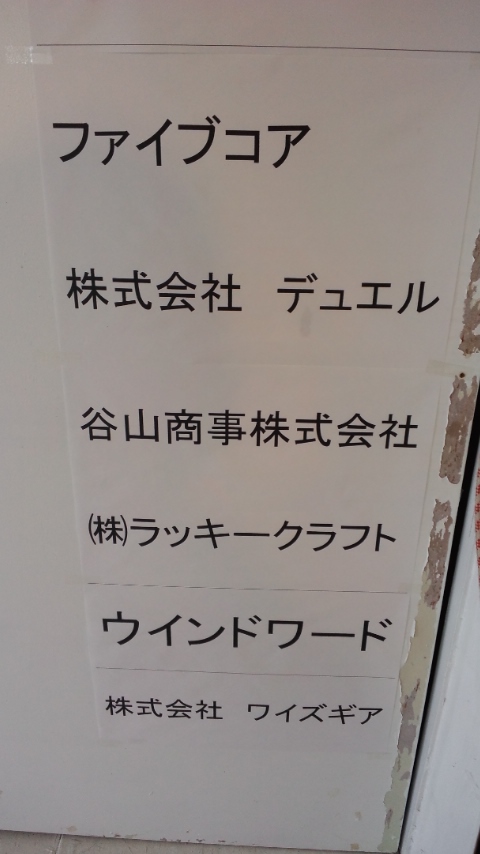 ファイブコア
株式会社　デュエル
谷山商事株式会社
㈱ラッキークラフト
ウインドワード
株式会社　ワイズギア